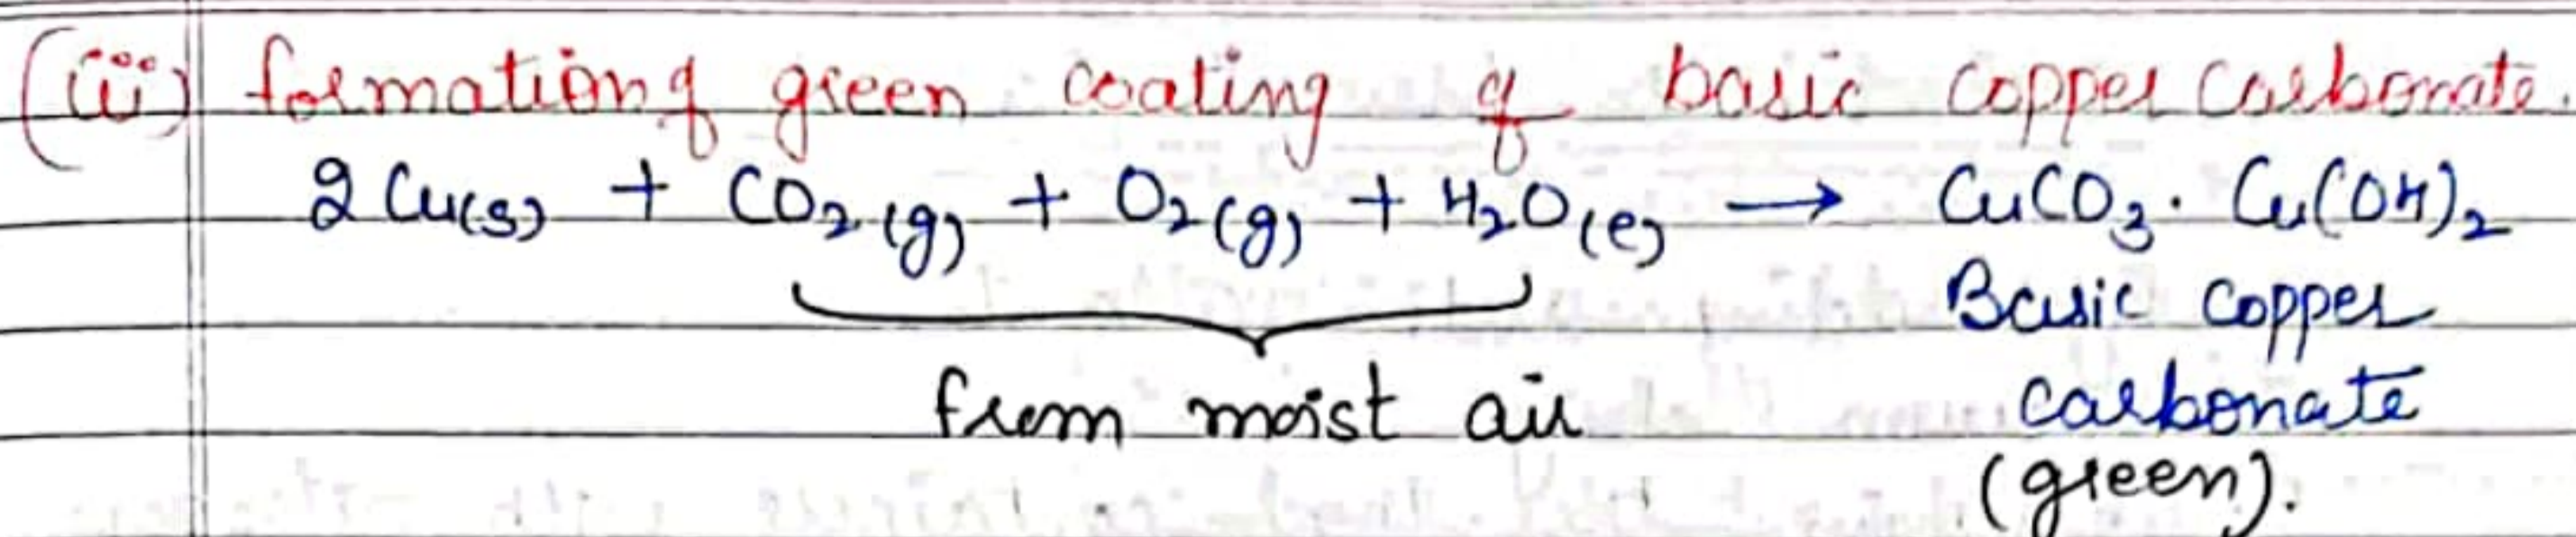 (iii) formation of green coating of basic copper carbonate.
2 Cu(s) + CO₂(g) + O₂(g) + H₂O(l) → CuCO₃. Cu(OH)₂
from moist air
Basic copper
carbonate
(green).